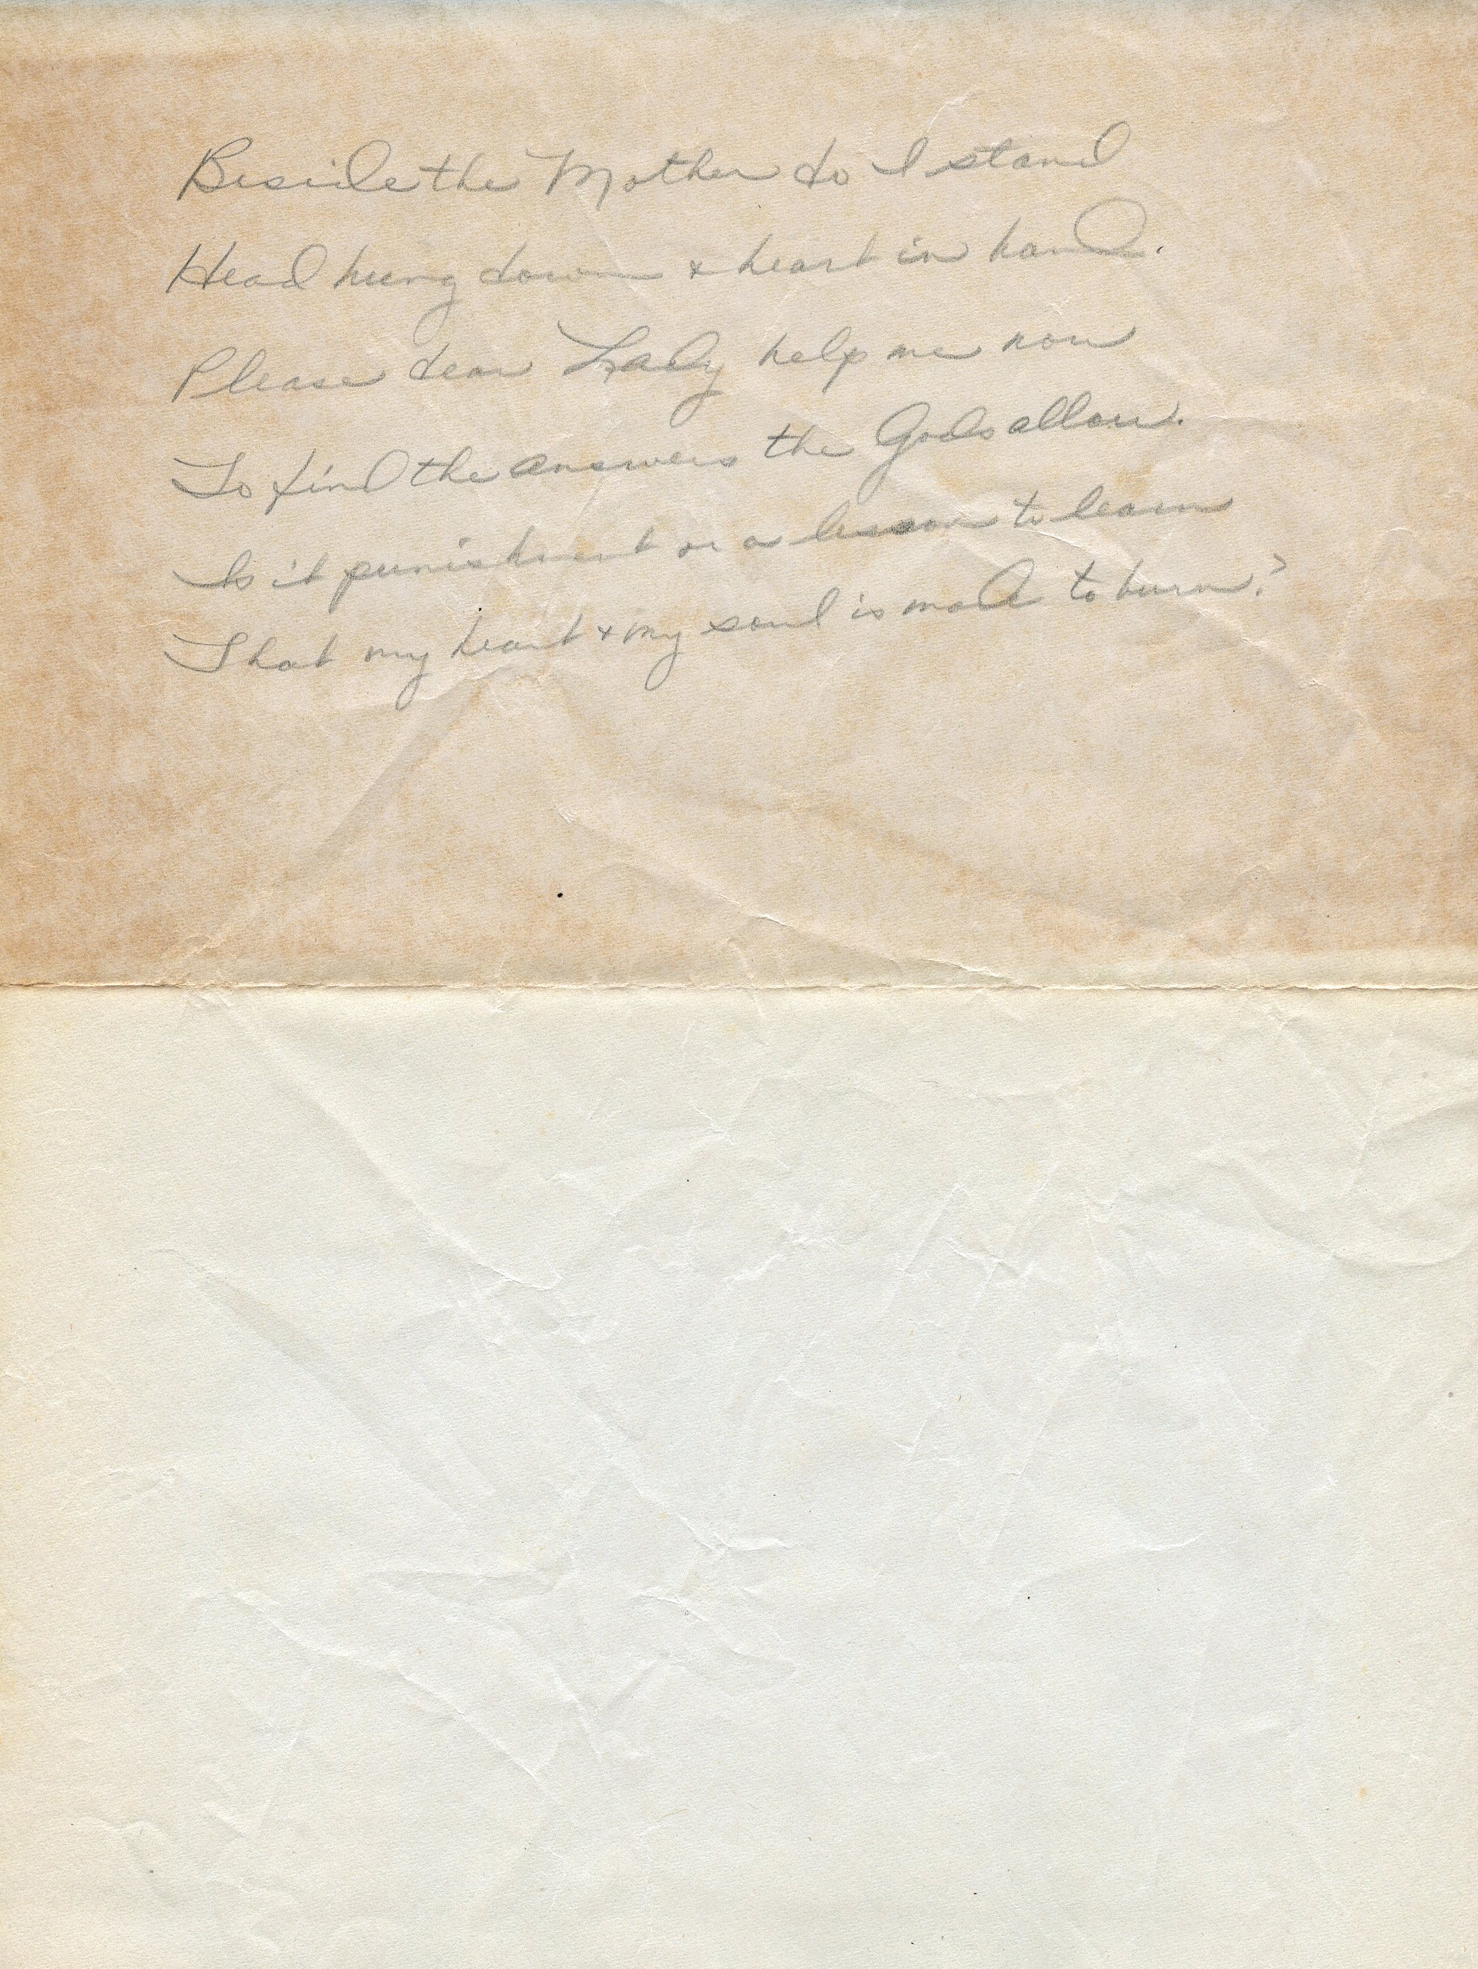 Beside the Mother do I stand
Head hung down & heart in hand.
Please dear Lady help me now
To find the answers the Gods allow.
Is it punishment or a lesson to learn
That my heart & my soul is made to burn?